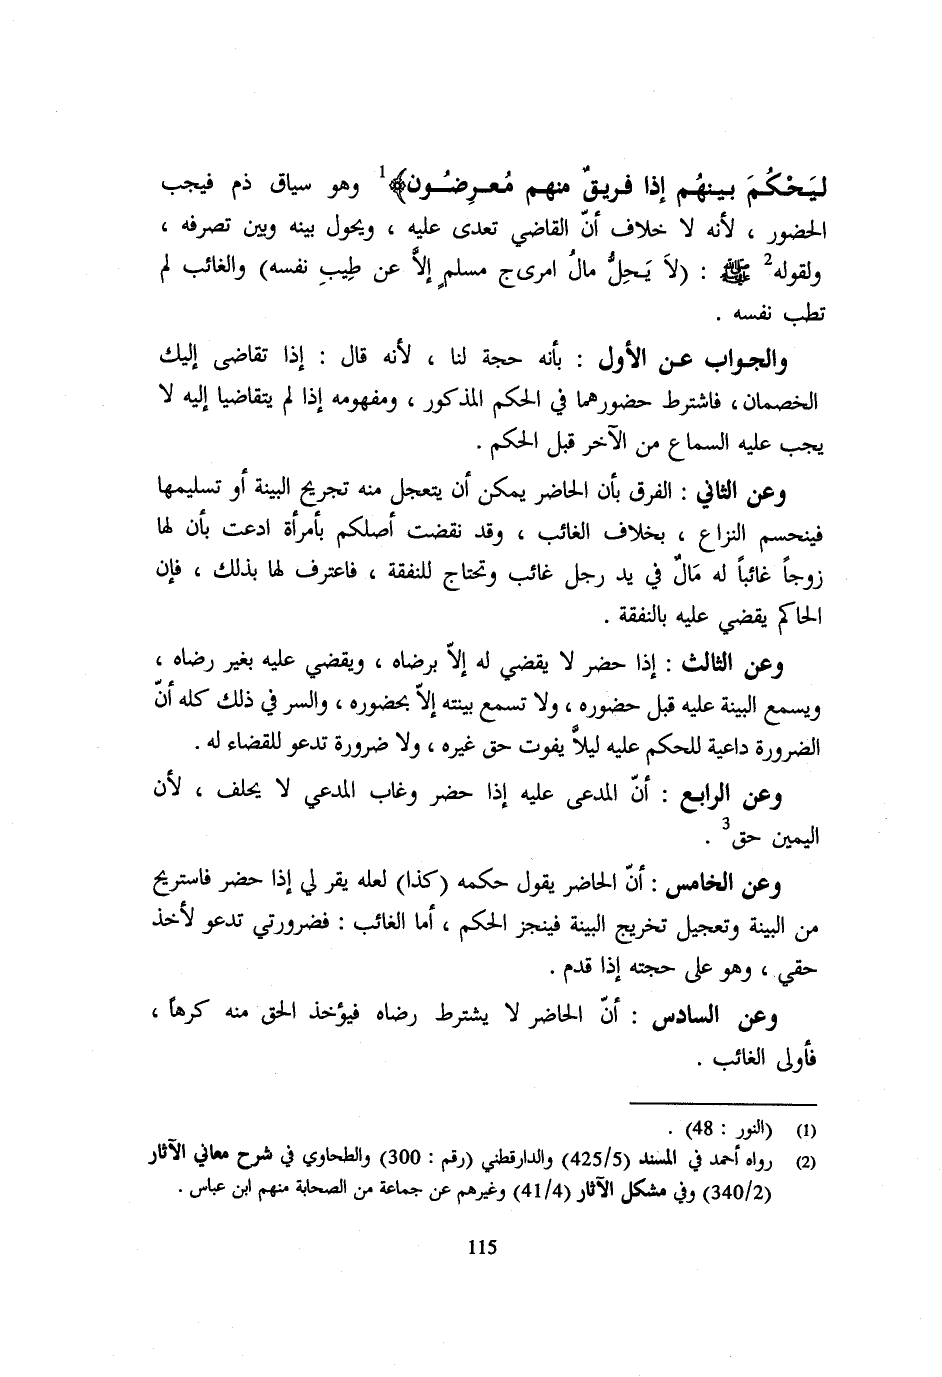 ليَحْكُمَ بـينهُم إذا فـريقٌ منهـم مُعـرِضُـون﴾1 وهو سياق ذم فيجب
الحضور ، لأنه لا خلاف أنّ القاضي تعدى عليه ، ويحول بينه وبين تصرفه ،
ولقوله2 ﷺ : (لاَ يَـحِلُّ مالُ امرىج مسلمٍ إلاَّ عن طِيبِ نفسه) والغائب لم
تطب نفسه .
والجـواب عـن الأول : بأنه حجة لنا ، لأنه قال : إذا تقاضى إليك
الخصمان، فاشترط حضورهما في الحكم المذكور ، ومفهومه إذا لم يتقاضيا إليه لا
يجب عليه السماع من الآخر قبل الحكم .
وعن الثاني : الفرق بأن الحاضر يمكن أن يتعجل منه تجريح البينة أو تسليمها
فينحسم النزاع ، بخلاف الغائب ، وقد نقضت أصلكم بأمرأة ادعت بأن لها
زوجاً غائباً له مَالٌ في يد رجل غائب وتحتاج للنفقة ، فاعترف لها بذلك ، فإن
الحاكم يقضي عليه بالنفقة .
وعن الثالث : إذا حضر لا يقضي له إلاّ برضاه ، ويقضي عليه بغير رضاه ،
ويسمع البينة عليه قبل حضوره ، ولا تسمع بينته إلاّ بحضوره ، والسر في ذلك كله أنّ
الضرورة داعية للحكم عليه ليلاَّ يفوت حق غيره ، ولا ضرورة تدعو للقضاء له .
وعن الرابـع : أنّ المدعى عليه إذا حضر وغاب المدعي لا يحلف ، لأن
اليمين حق3 .
وعن الخامس : أنّ الحاضر يقول حكمه (كذا) لعله يقر لي إذا حضر فاستريح
من البينة وتعجيل تخريج البينة فينجز الحكم ، أما الغائب : فضرورتي تدعو لأخذ
حقي ، وهو على حجته إذا قدم .
وعن السادس : أنّ الحاضر لا يشترط رضاه فيؤخذ الحق منه كرهاً ،
فأولى الغائب .
(1) (النور : 48) .
(2) رواه أحمد في المسند (425/5) والدارقطني (رقم : 300) والطحاوي في شرح معاني الآثار
(340/2) وفي مشكل الآثار (41/4) وغيرهم عن جماعة من الصحابة منهم ابن عباس .
115